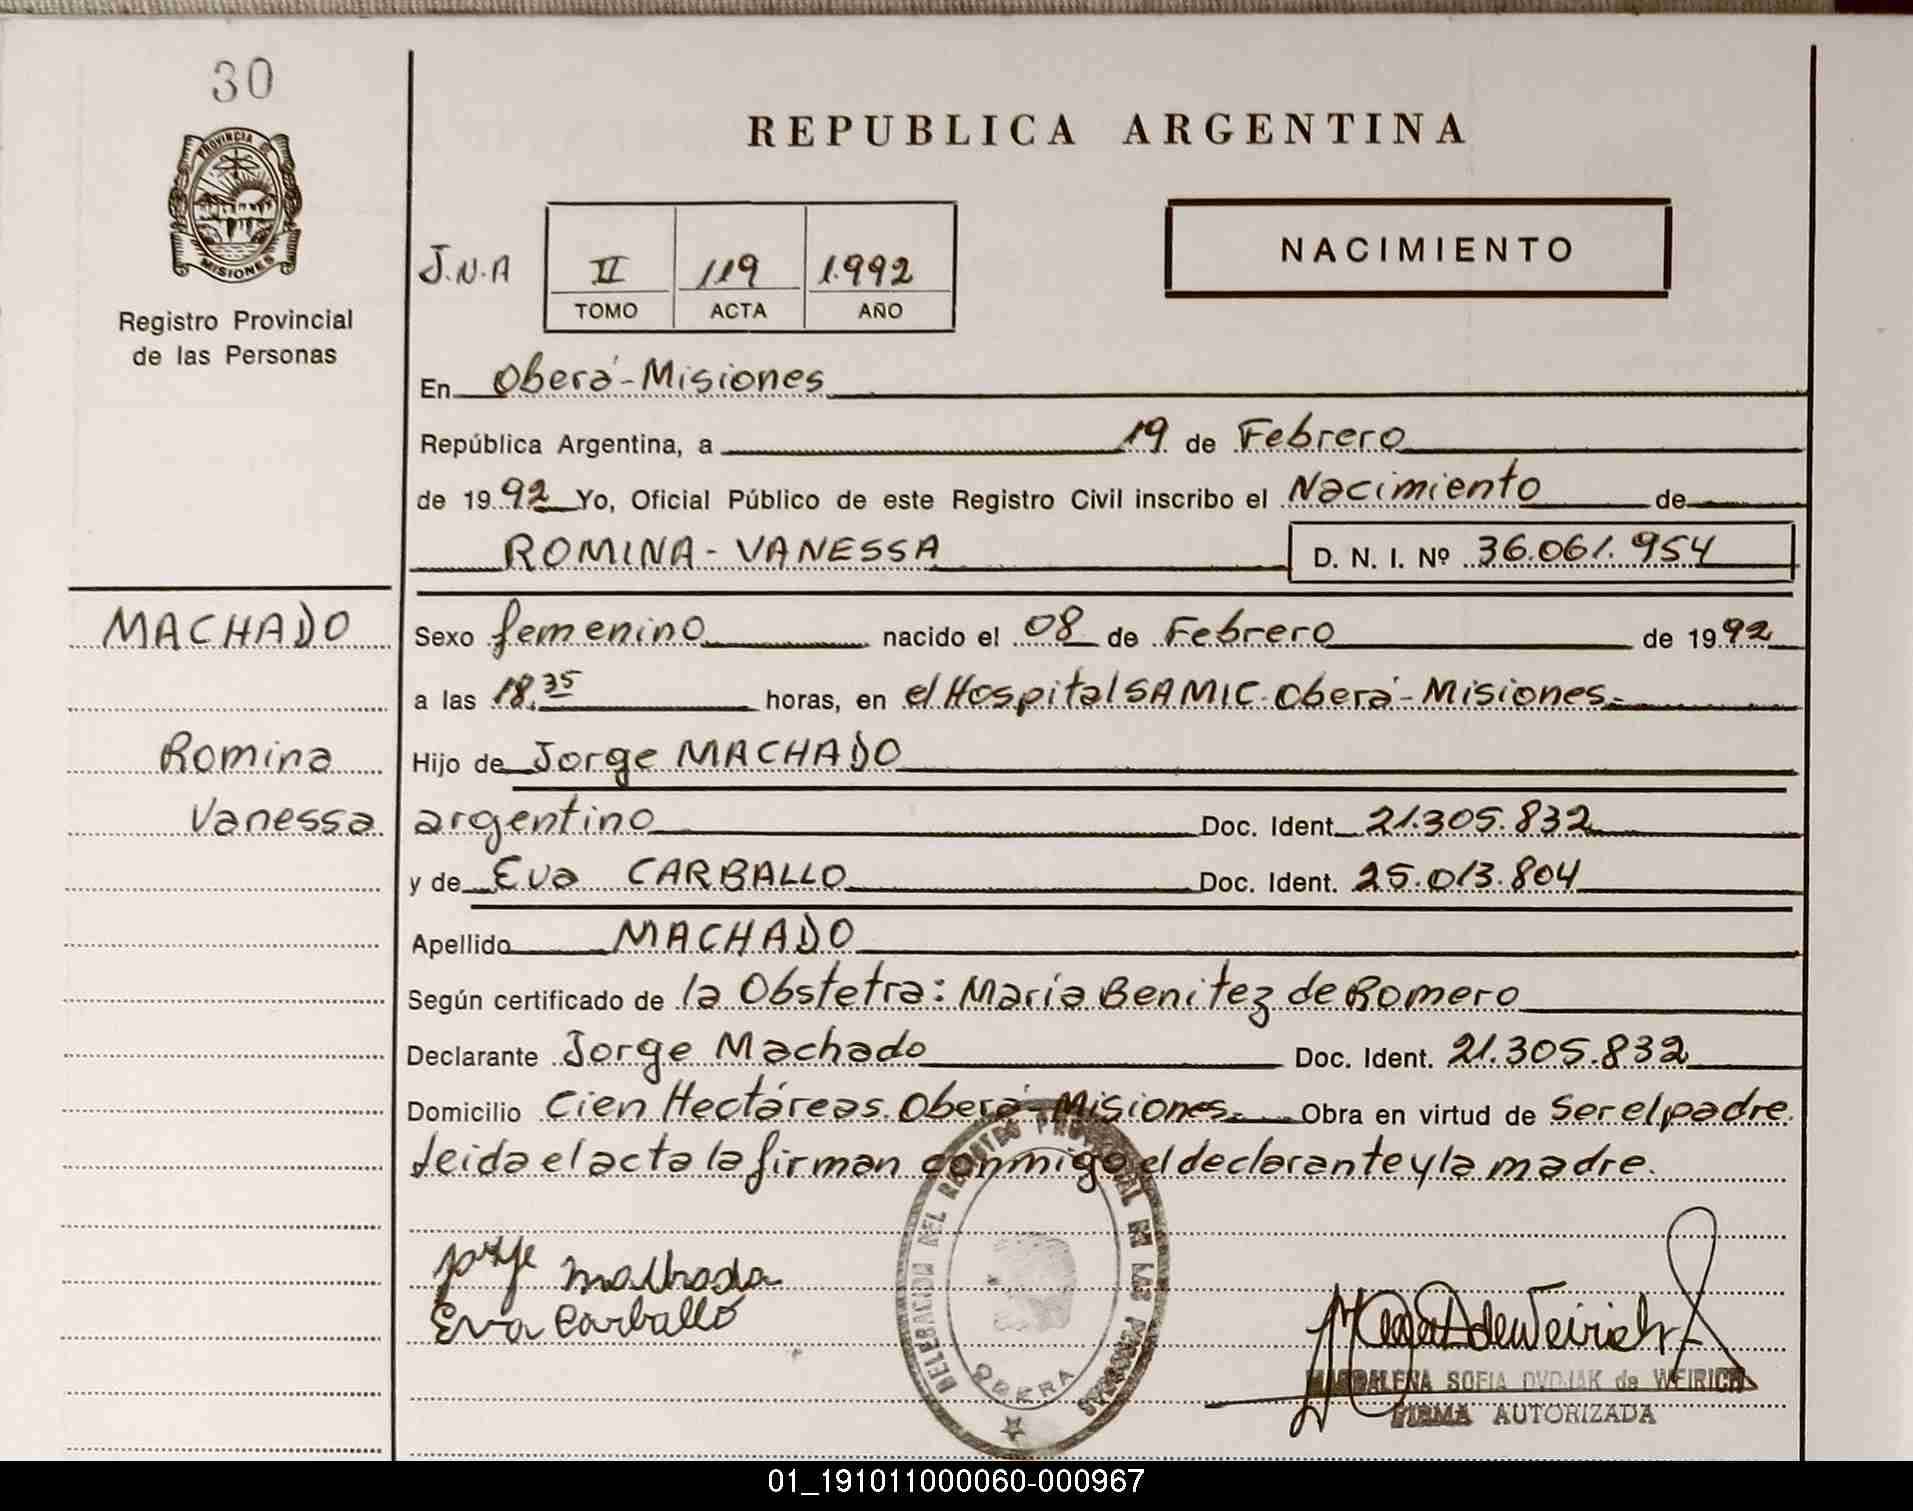 30
PROVINCIA DE
MISIONES
Registro Provincial
de las Personas
MACHADO
Romina
Vanessa
REPUBLICA ARGENTINA
J.N.A
II 119 1.992
TOMO ACTA AÑO
NACIMIENTO
En Oberá-Misiones
República Argentina, a 19 de Febrero
de 1992 Yo, Oficial Público de este Registro Civil inscribo el Nacimiento de
ROMINA-VANESSA D. N. I. Nº 36.061.954
Sexo femenino nacido el 08 de Febrero de 1992
a las 18.35 horas, en el Hospital SAMIC-Oberá-Misiones.
Hijo de Jorge MACHADO
argentino Doc. Ident. 21.305.832
y de Eva CARBALLO Doc. Ident. 25.013.804
Apellido MACHADO
Según certificado de la Obstetra: María Benitez de Romero
Declarante Jorge Machado Doc. Ident. 21.305.832
Domicilio Cien Hectáreas. Oberá-Misiones. Obra en virtud de ser el padre.
Leida el acta la firman conmigo el declarante y la madre.
Jorge Malhada
Eva Carballo
DELEGACION DEL REGISTRO PROVINCIAL DE LAS PERSONAS
OBERA
MAGDALENA SOFIA DVOJAK de WEIRICH
FIRMA AUTORIZADA
01_191011000060-000967